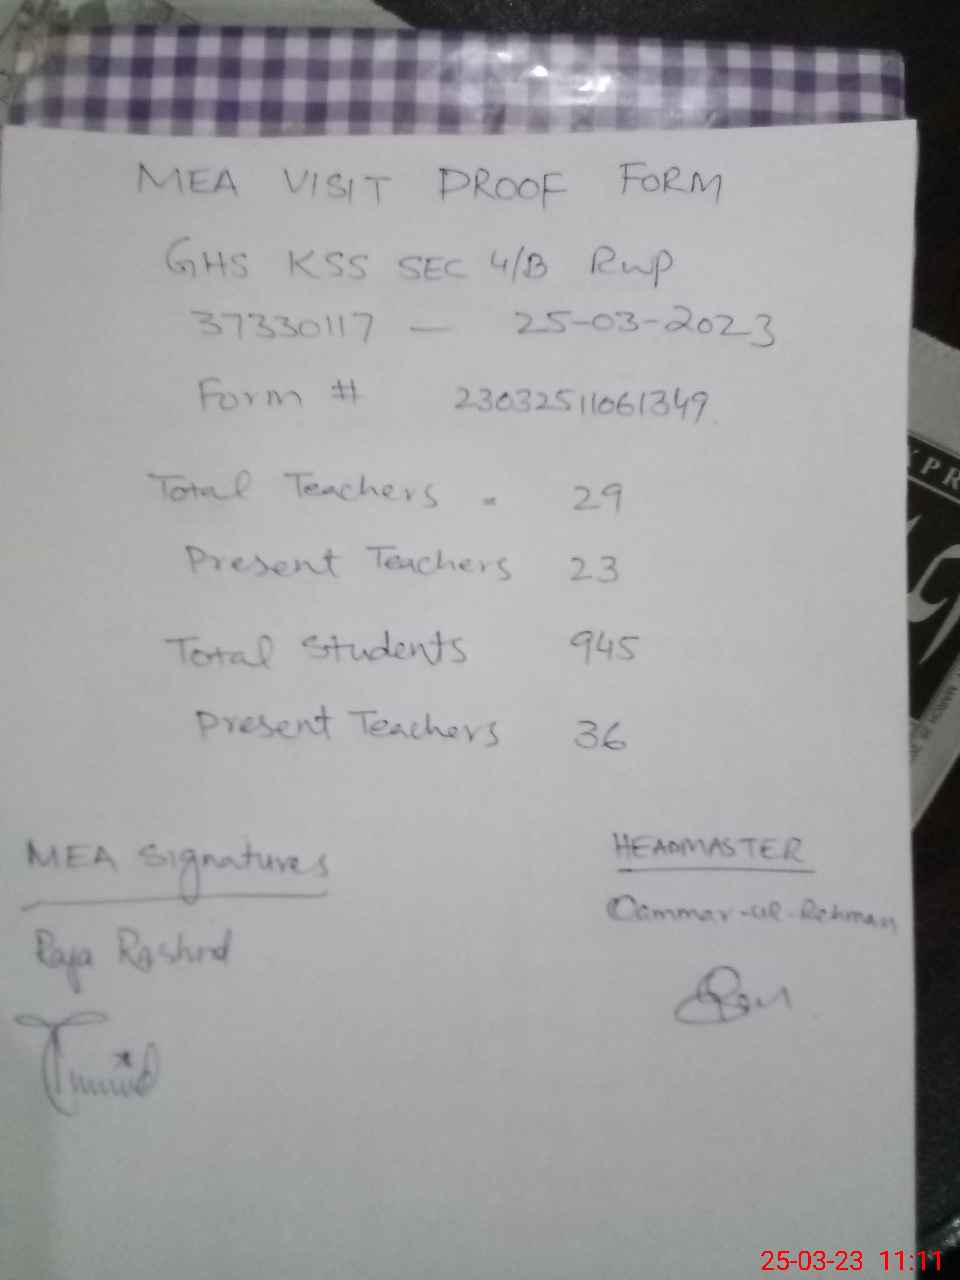 MEA VISIT PROOF FORM
GHS KSS SEC 4/B Rwp
37330117 — 25-03-2023
Form # 23032511061349.
Total Teachers = 29
Present Teachers 23
Total Students 945
Present Teachers 36
MEA Signatures
Raja Rashid
HEADMASTER
Qammar-ul-Rehman
YPR
25-03-23 11:11